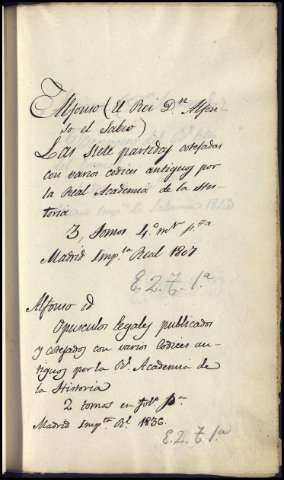 Alfonso (El Rei Dn. Alfon-
so el Sabio)
Las siete partidas cotejadas
con varios codices antiguos por
la Real Academia de la His-
toria
3. Tomos 4.º mll. pta
Madrid Imp.ta Real 1807
E. 2. 7. 1.ª
Alfonso id
Opusculos legales publicados
y cotejados con varios Codices an-
tiguos por la Rl. Academia de
la Historia
2 tomos en fol.º pta
Madrid Imp.ta Rl. 1836.
E. 2. 7. 1.ª